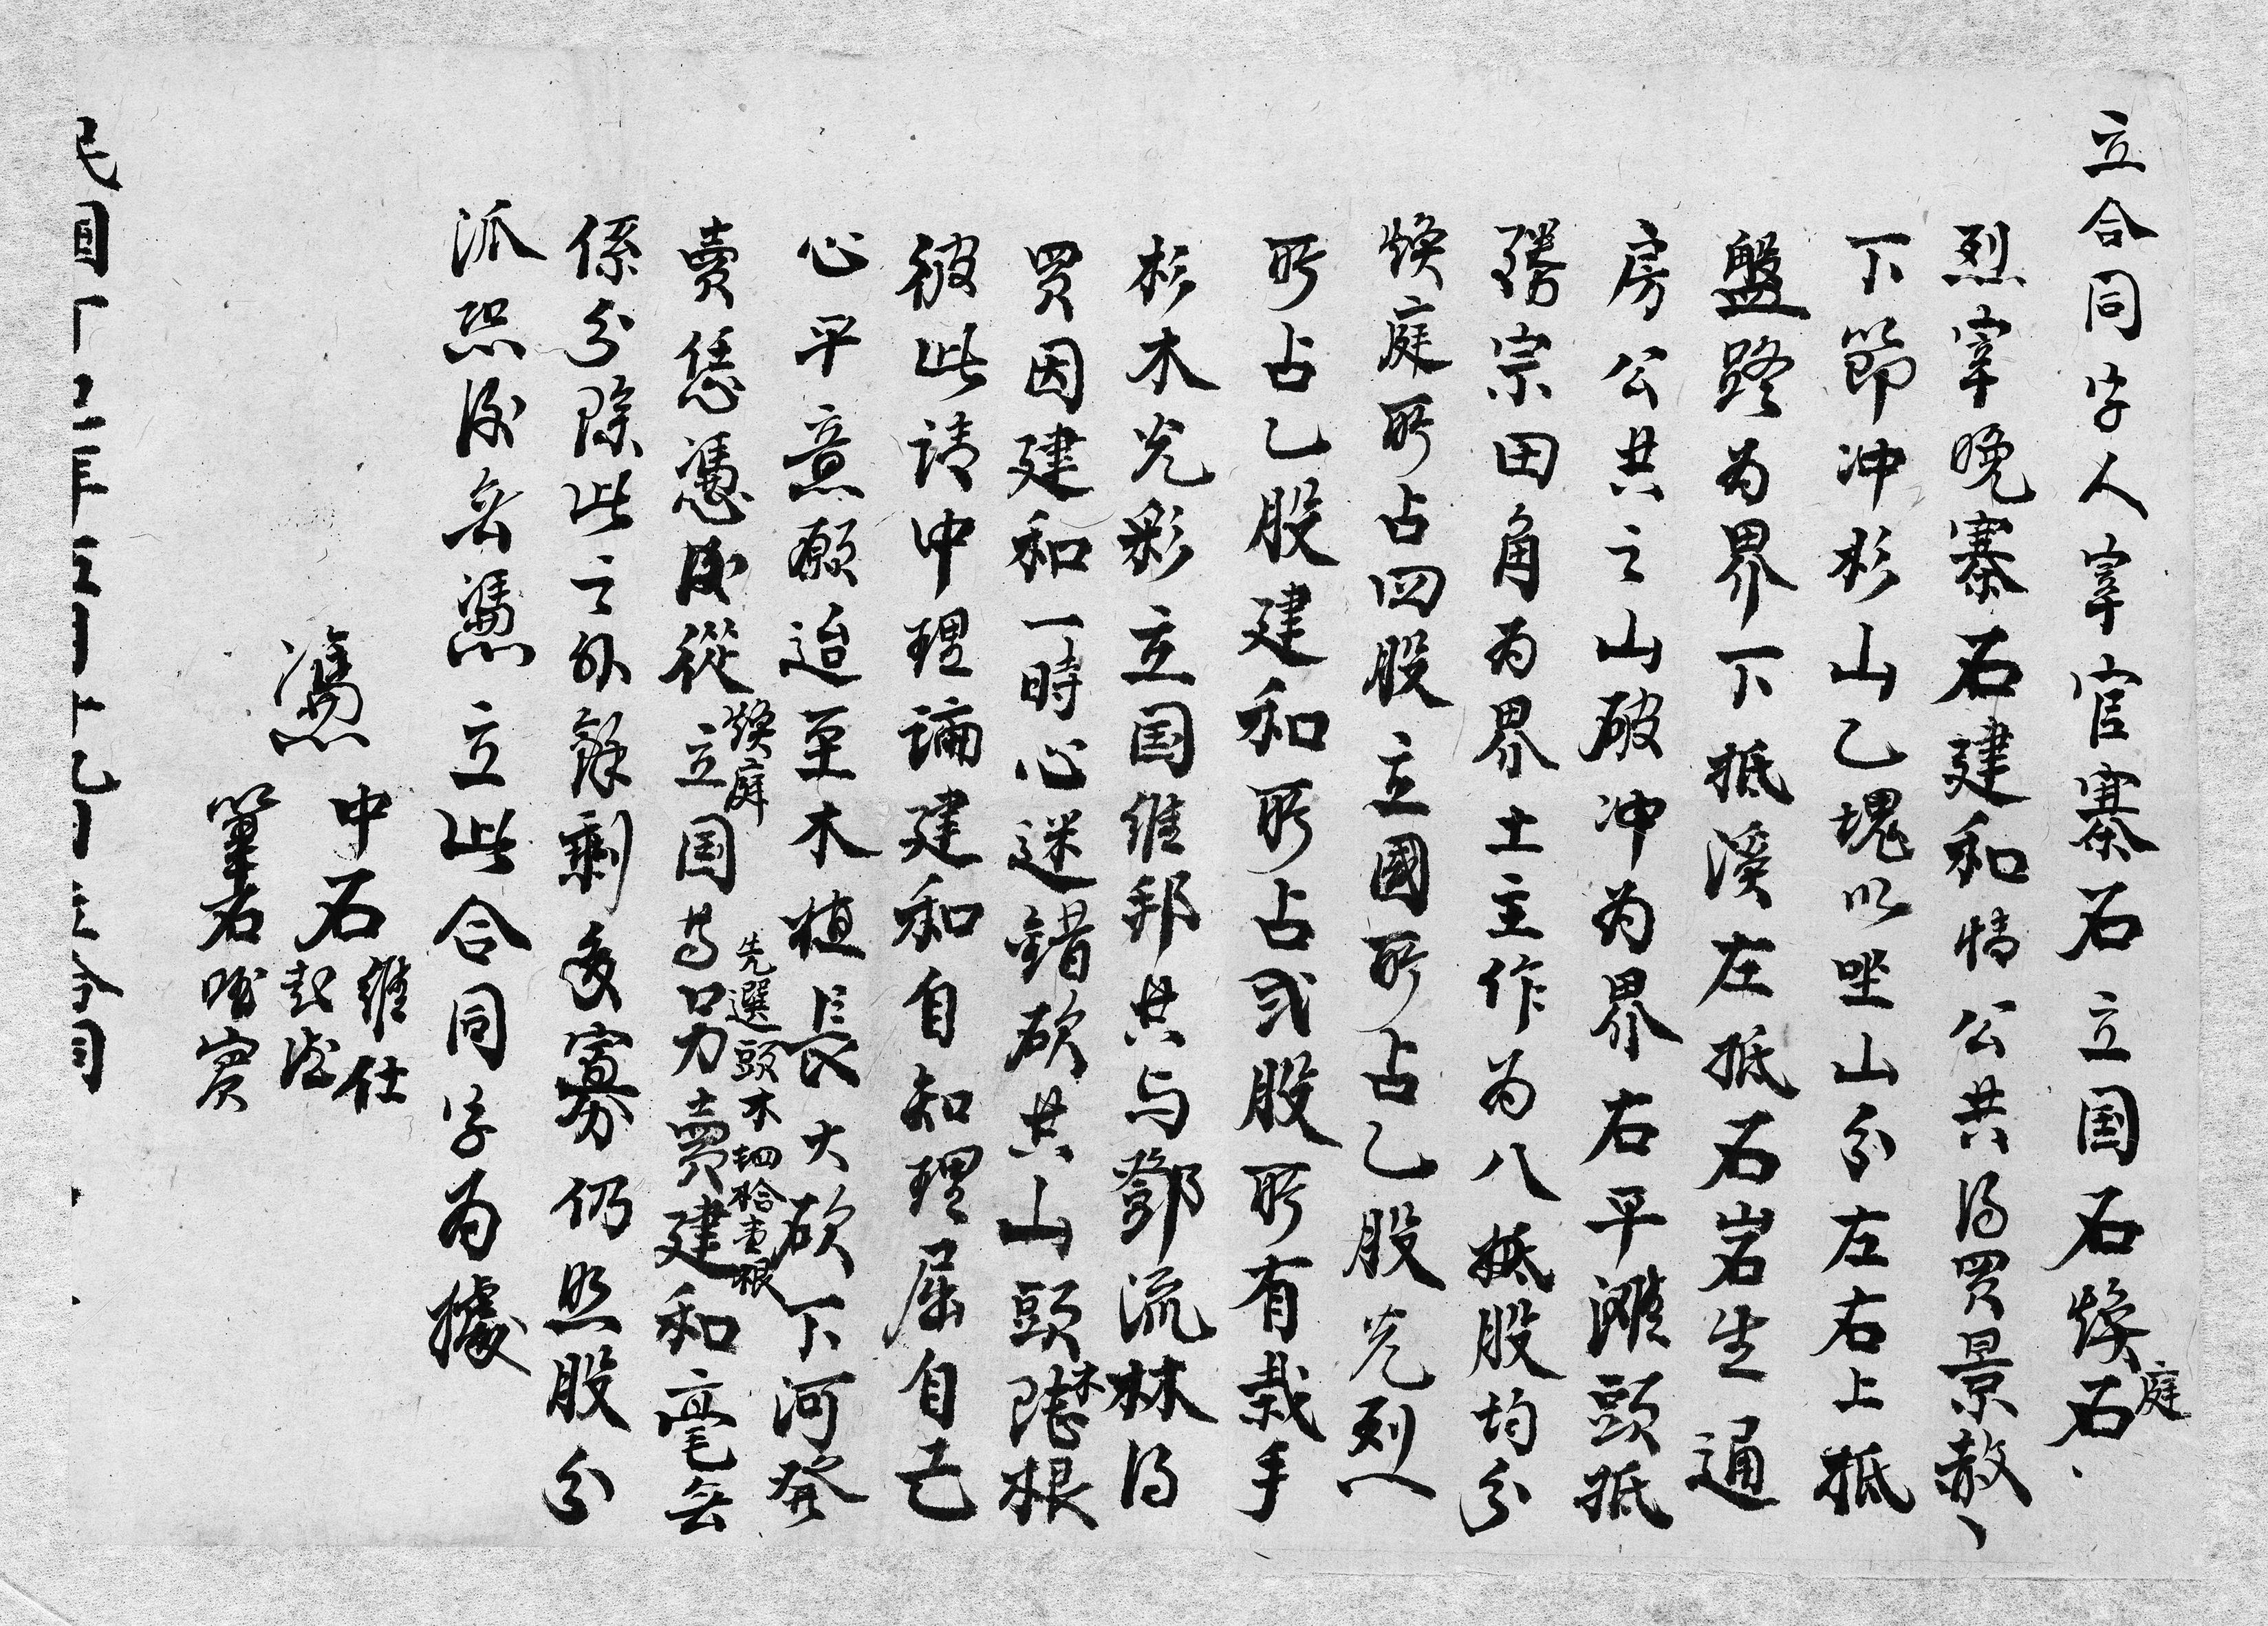 立合同字人宰官寨石立国石煥庭石、
烈宰晚寨石建和情公共得買景敖、
下節冲杉山乙塊以坐山分左右上抵
盤路為界下抵溪左抵石岩生通
房公共之山破冲為界右平灘頭抵
宗田角為界土主作為八抵股均分
煥庭所占四股立國所占乙股光烈
所占乙股建和所占弍股所有栽手
杉木光彩立国維邦共与鄧流林得
買因建和一時心迷錯砍共山頭木根
彼此請中理論建和自知理屈自己
心平意願迨至木植長大砍下河発
賣恁憑後從煥庭立国等先選頭木四拾壹根另賣建和毫無
係分除此之外餘剩多寡仍照股分
派恐後無憑立此合同字為據
憑中石維仕
起
筆石 實
民国 年五月十九日立合同